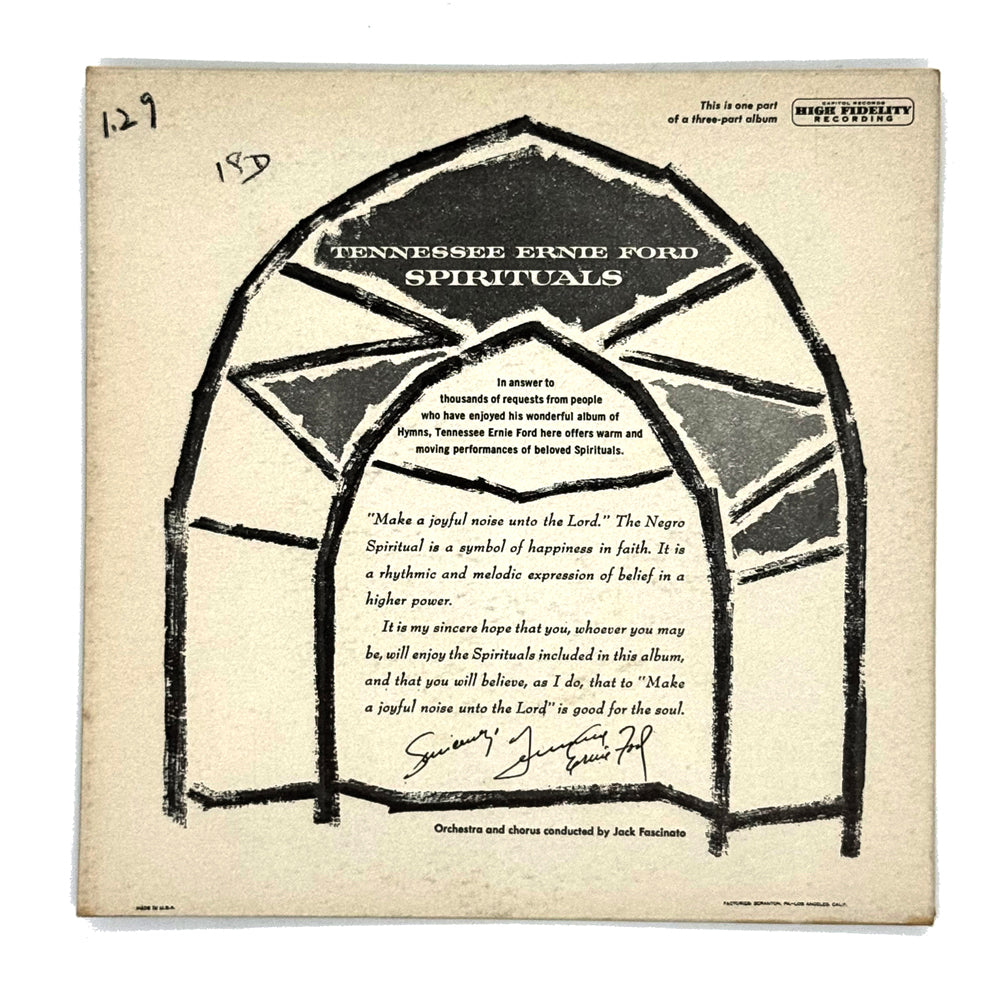 1.29
18D
This is one part
of a three-part album
CAPITOL RECORDS
HIGH FIDELITY
RECORDING
TENNESSEE ERNIE FORD
SPIRITUALS
In answer to
thousands of requests from people
who have enjoyed his wonderful album of
Hymns, Tennessee Ernie Ford here offers warm and
moving performances of beloved Spirituals.
"Make a joyful noise unto the Lord." The Negro
Spiritual is a symbol of happiness in faith. It is
a rhythmic and melodic expression of belief in a
higher power.
It is my sincere hope that you, whoever you may
be, will enjoy the Spirituals included in this album,
and that you will believe, as I do, that to "Make
a joyful noise unto the Lord" is good for the soul.
Sincerely, Tennessee
Ernie Ford
Orchestra and chorus conducted by Jack Fascinato
MADE IN U.S.A.
FACTORIES: SCRANTON, PA.—LOS ANGELES, CALIF.